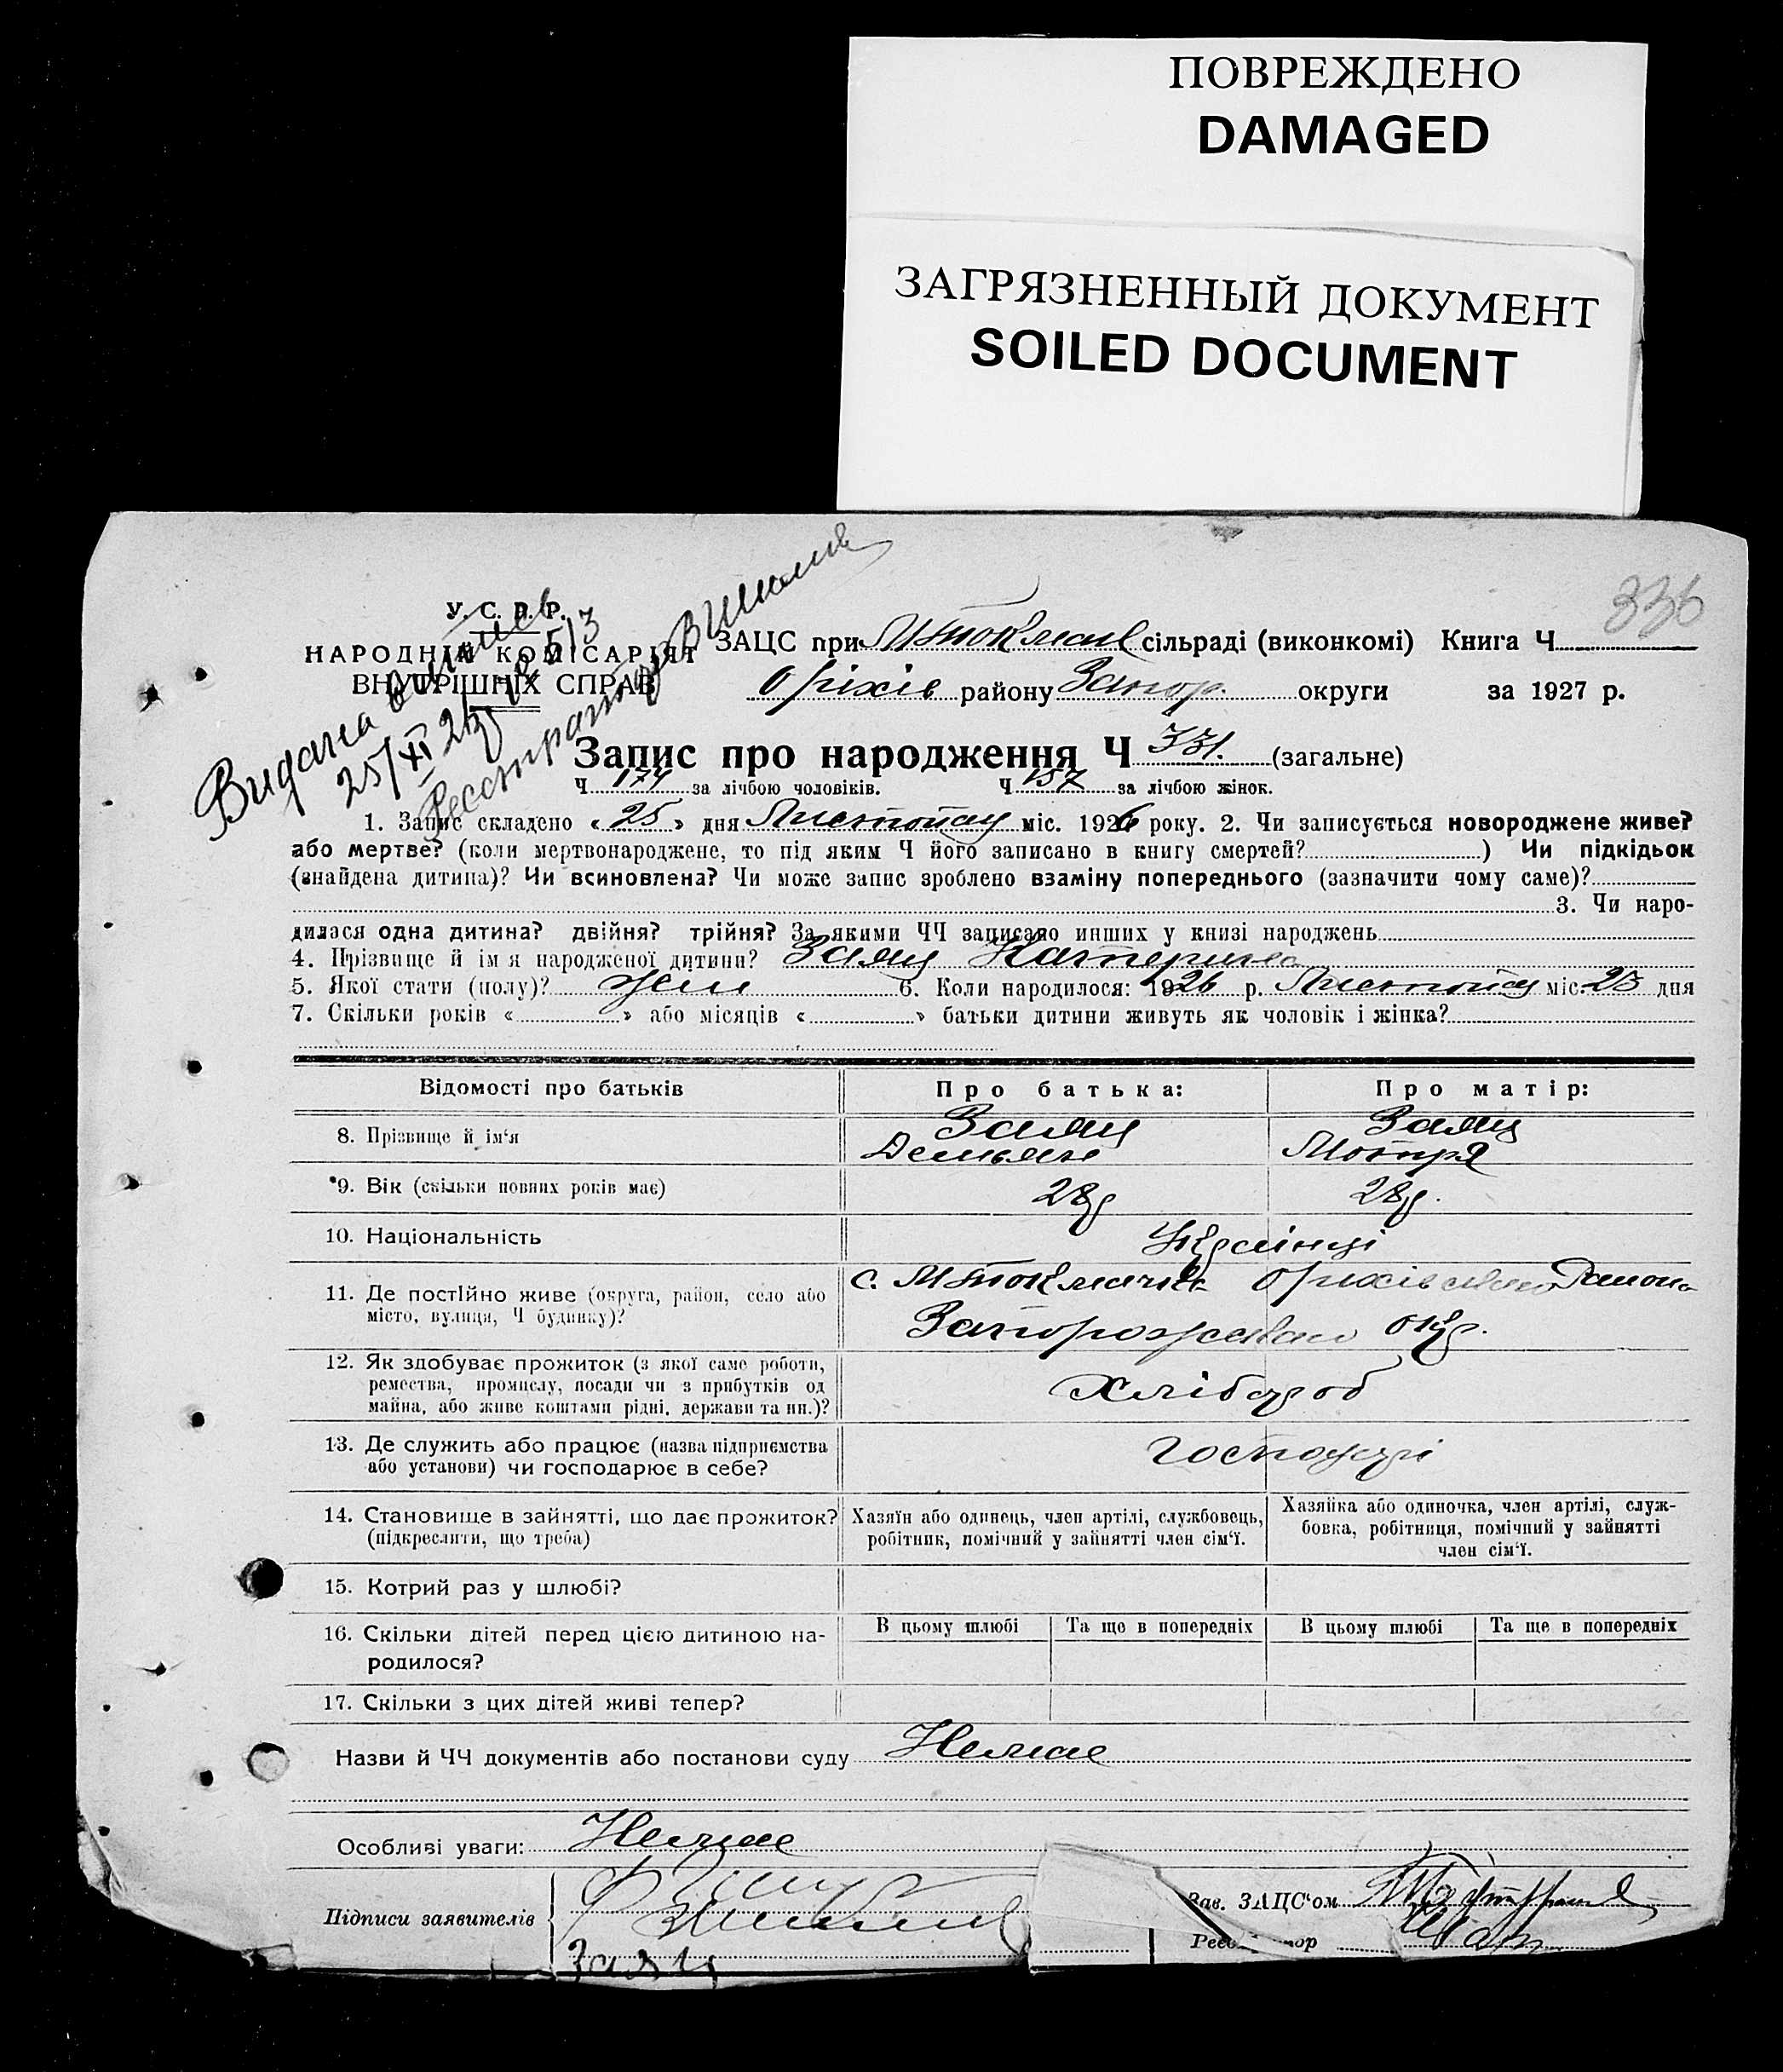 ПОВРЕЖДЕНО
DAMAGED
ЗАГРЯЗНЕННЫЙ ДОКУМЕНТ
SOILED DOCUMENT
336
Видана
25/XI 26 № 513
У. С. Р. Р.
НАРОДНІЙ КОМІСАРІЯТ
ВНУТРІШНІХ СПРАВ
ЗАЦС при М Токмац сільраді (виконкомі) Книга Ч
Оріхів району Запор. округи за 1927 р.
Запис про народження Ч 331. (загальне)
Ч 174 за лічбою чоловіків. Ч 157 за лічбою жінок.
1. Запис складено « 25 » дня Листопад міс. 1926 року. 2. Чи записується новороджене живе?
або мертве? (коли мертвонароджене, то під яким Ч його записано в книгу смертей? ) Чи підкідьок
(знайдена дитина)? Чи всиновлена? Чи може запис зроблено взаміну попереднього (зазначити чому саме)?
3. Чи наро-
дилася одна дитина? двійня? трійня? За якими ЧЧ записано инших у книзі народжень
4. Прізвище й ім я народженої дитини? Заяц Катерина
5. Якої стати (полу)? жін 6. Коли народилося: 1926 р. Листопад міс. 23 дня
7. Скільки років « » або місяців « » батьки дитини живуть як чоловік і жінка?
Відомості про батьків Про батька: Про матір:
8. Прізвище й ім'я Заяц Демьян Заяц Мотря
9. Вік (скільки повних років має) 28р 28р.
10. Національність Українці
11. Де постійно живе (округа, район, село або
місто, вулиця, Ч будинку)?
с. М Токмачка Оріхівського Району
Запорожськой окр.
12. Як здобуває прожиток (з якої саме роботи,
ремества, промислу, посади чи з прибутків од
майна, або живе коштами рідні, держави та ин.)?
Хлібороб
13. Де служить або працює (назва підприємства
або установи) чи господарює в себе?
14. Становище в зайнятті, що дає прожиток?
(підкреслити, що треба)
Хазяїн або одинець, член артілі, службовець,
робітник, помічний у зайнятті член сім'ї.
Хазяйка або одиночка, член артілі, служ-
бовка, робітниця, помічний у зайнятті
член сім'ї.
15. Котрий раз у шлюбі?
16. Скільки дітей перед цією дитиною на-
родилося?
В цьому шлюбі Та ще в попередніх В цьому шлюбі Та ще в попередніх
17. Скільки з цих дітей живі тепер?
Назви й ЧЧ документів або постанови суду Немае
Особливі уваги: Немае
Підписи заявителів
Заяц
Зав. ЗАЦС'ом